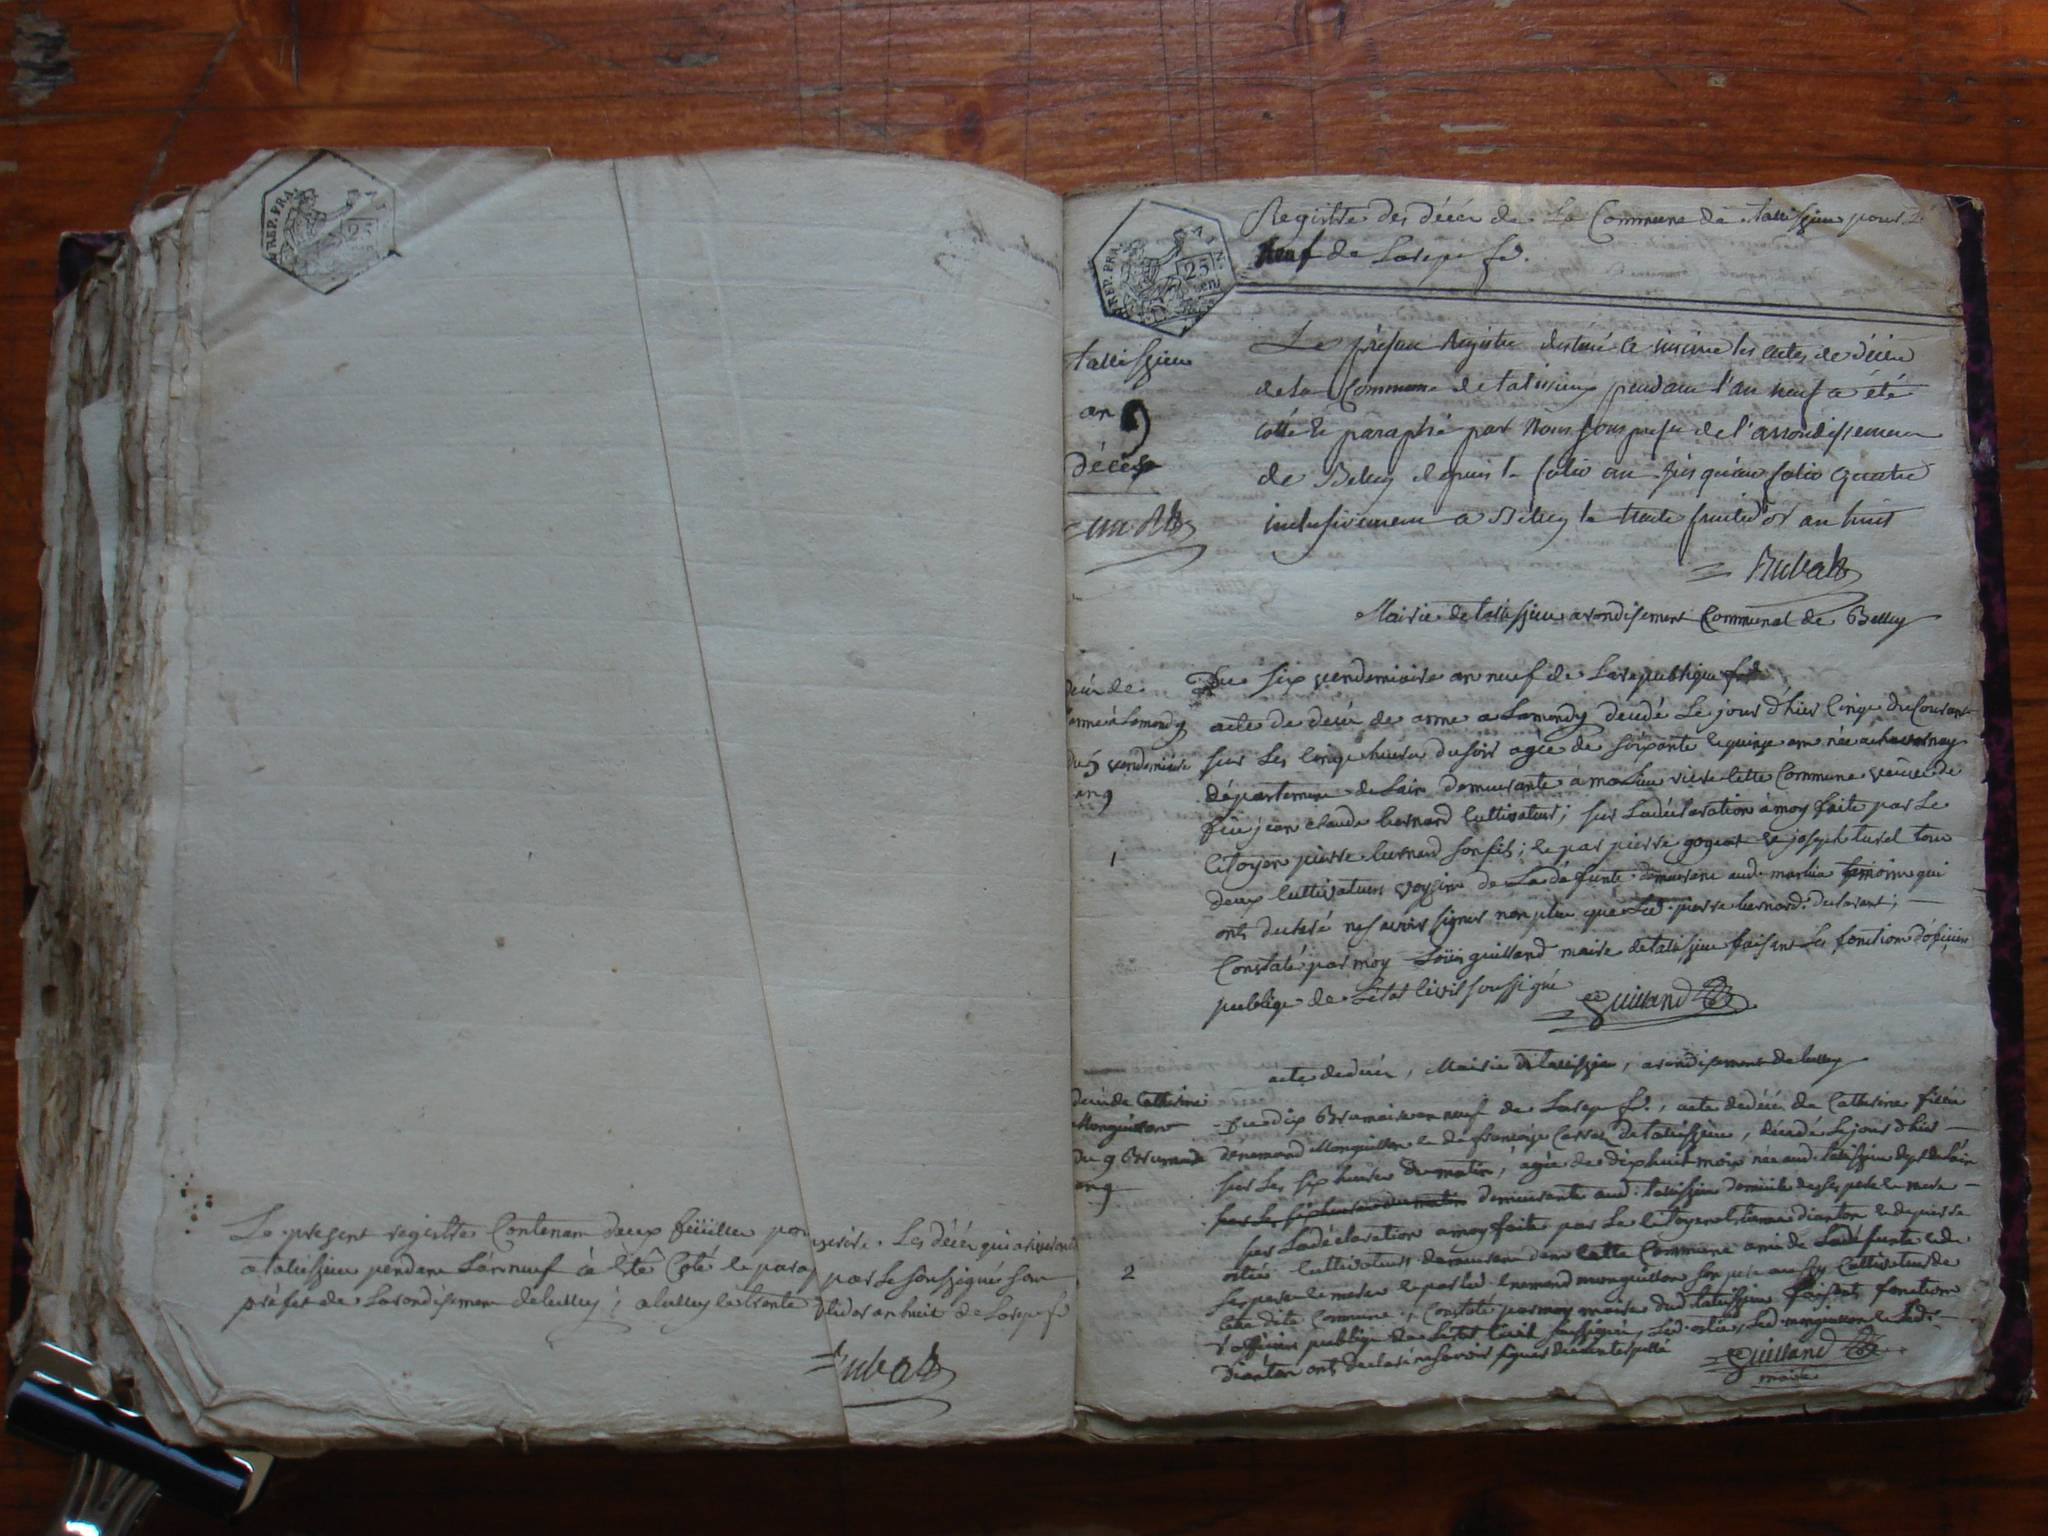 REP. FRA.
25
Le present registre Contenant deux feüilles pour inscrire Les décès qui ariveront
a talissieu pendant L'an neuf à été Coté et parap par Le soussigné sous
préfet de L'arondisement de belley ; a belley le trente an huit de La rep fr
Rubat
REP. FRA.
AIN.
25
Registre des décès de La Commune de talissieu pour L'
neuf de La rep fr.
talissieu
an 9
décès
un Rb
Le présent Registre destiné a inscrire les actes de décès
de la Commune de talissieu pendant l'an neuf a été
cotté et paraphé par Nous sous prefet de l'arrondissement
de Belley depuis le folio un jusqu'au folio quatre
inclusivement a Belley le trente fructidor an huit
Rubat
Mairie de talissieu arondisement Communal de Belley
décès de
anne à Lamondy
du 5 vendemiaire
an 9
1
Du six vendemiaire an neuf de La republique
acte de décès de anne a Lamondy décédé Le jour d'hier Cinq du Courant
sur Les Cinq heures du soir agée de soixante et quinze ans née a
département de Lain demeurante à cette Commune veuve de
feu jean claude bernard Cultivateur ; sur La déclaration à moy faite par Le
Citoyen pierre bernard son fils ; et par pierre et joseph tous
deux Cultivateurs voysins de La défunte demeurant aud. temoins qui
ont déclaré ne savoir signer non plus que Led. pierre bernard déclarant ;
Constaté par moy Loüis guilland maire de talissieu faisant Les fonction d'oficier
publique de L'état Civil soussigné
Guilland
acte de décès, Mairie de talissieu, arondisement de belley
décès de Catherine
Monguillon
du 9 Brumaire
an 9
2
Du dix Brumaire an neuf de La rep fr., acte de décès de Catherine fille
d'enemond Monguillon et de françoise de talissieu, décédé Le jour d'hier
sur Les six heures du matin, agée de dix huit mois née aud. talissieu dept de Lain
sur Les six heures du matin demeurante aud. talissieu domicile de ses pere et mere
sur La déclaration a moy faite par Le Citoyen Etienne dianton et de pierre
Cultivateurs demeurant dans cette Commune amis de La défunte et de
ses pere et mere et par Led. Enemond monguillon son pere aussy Cultivateur de
Cette dite Commune ; Constaté par moy maire dud. talissieu faisant fonction
d'officier publique de L'état Civil soussigné, Led. Led. monguillon et Led.
dianton ont déclaré ne savoir signer de
Guilland
maire